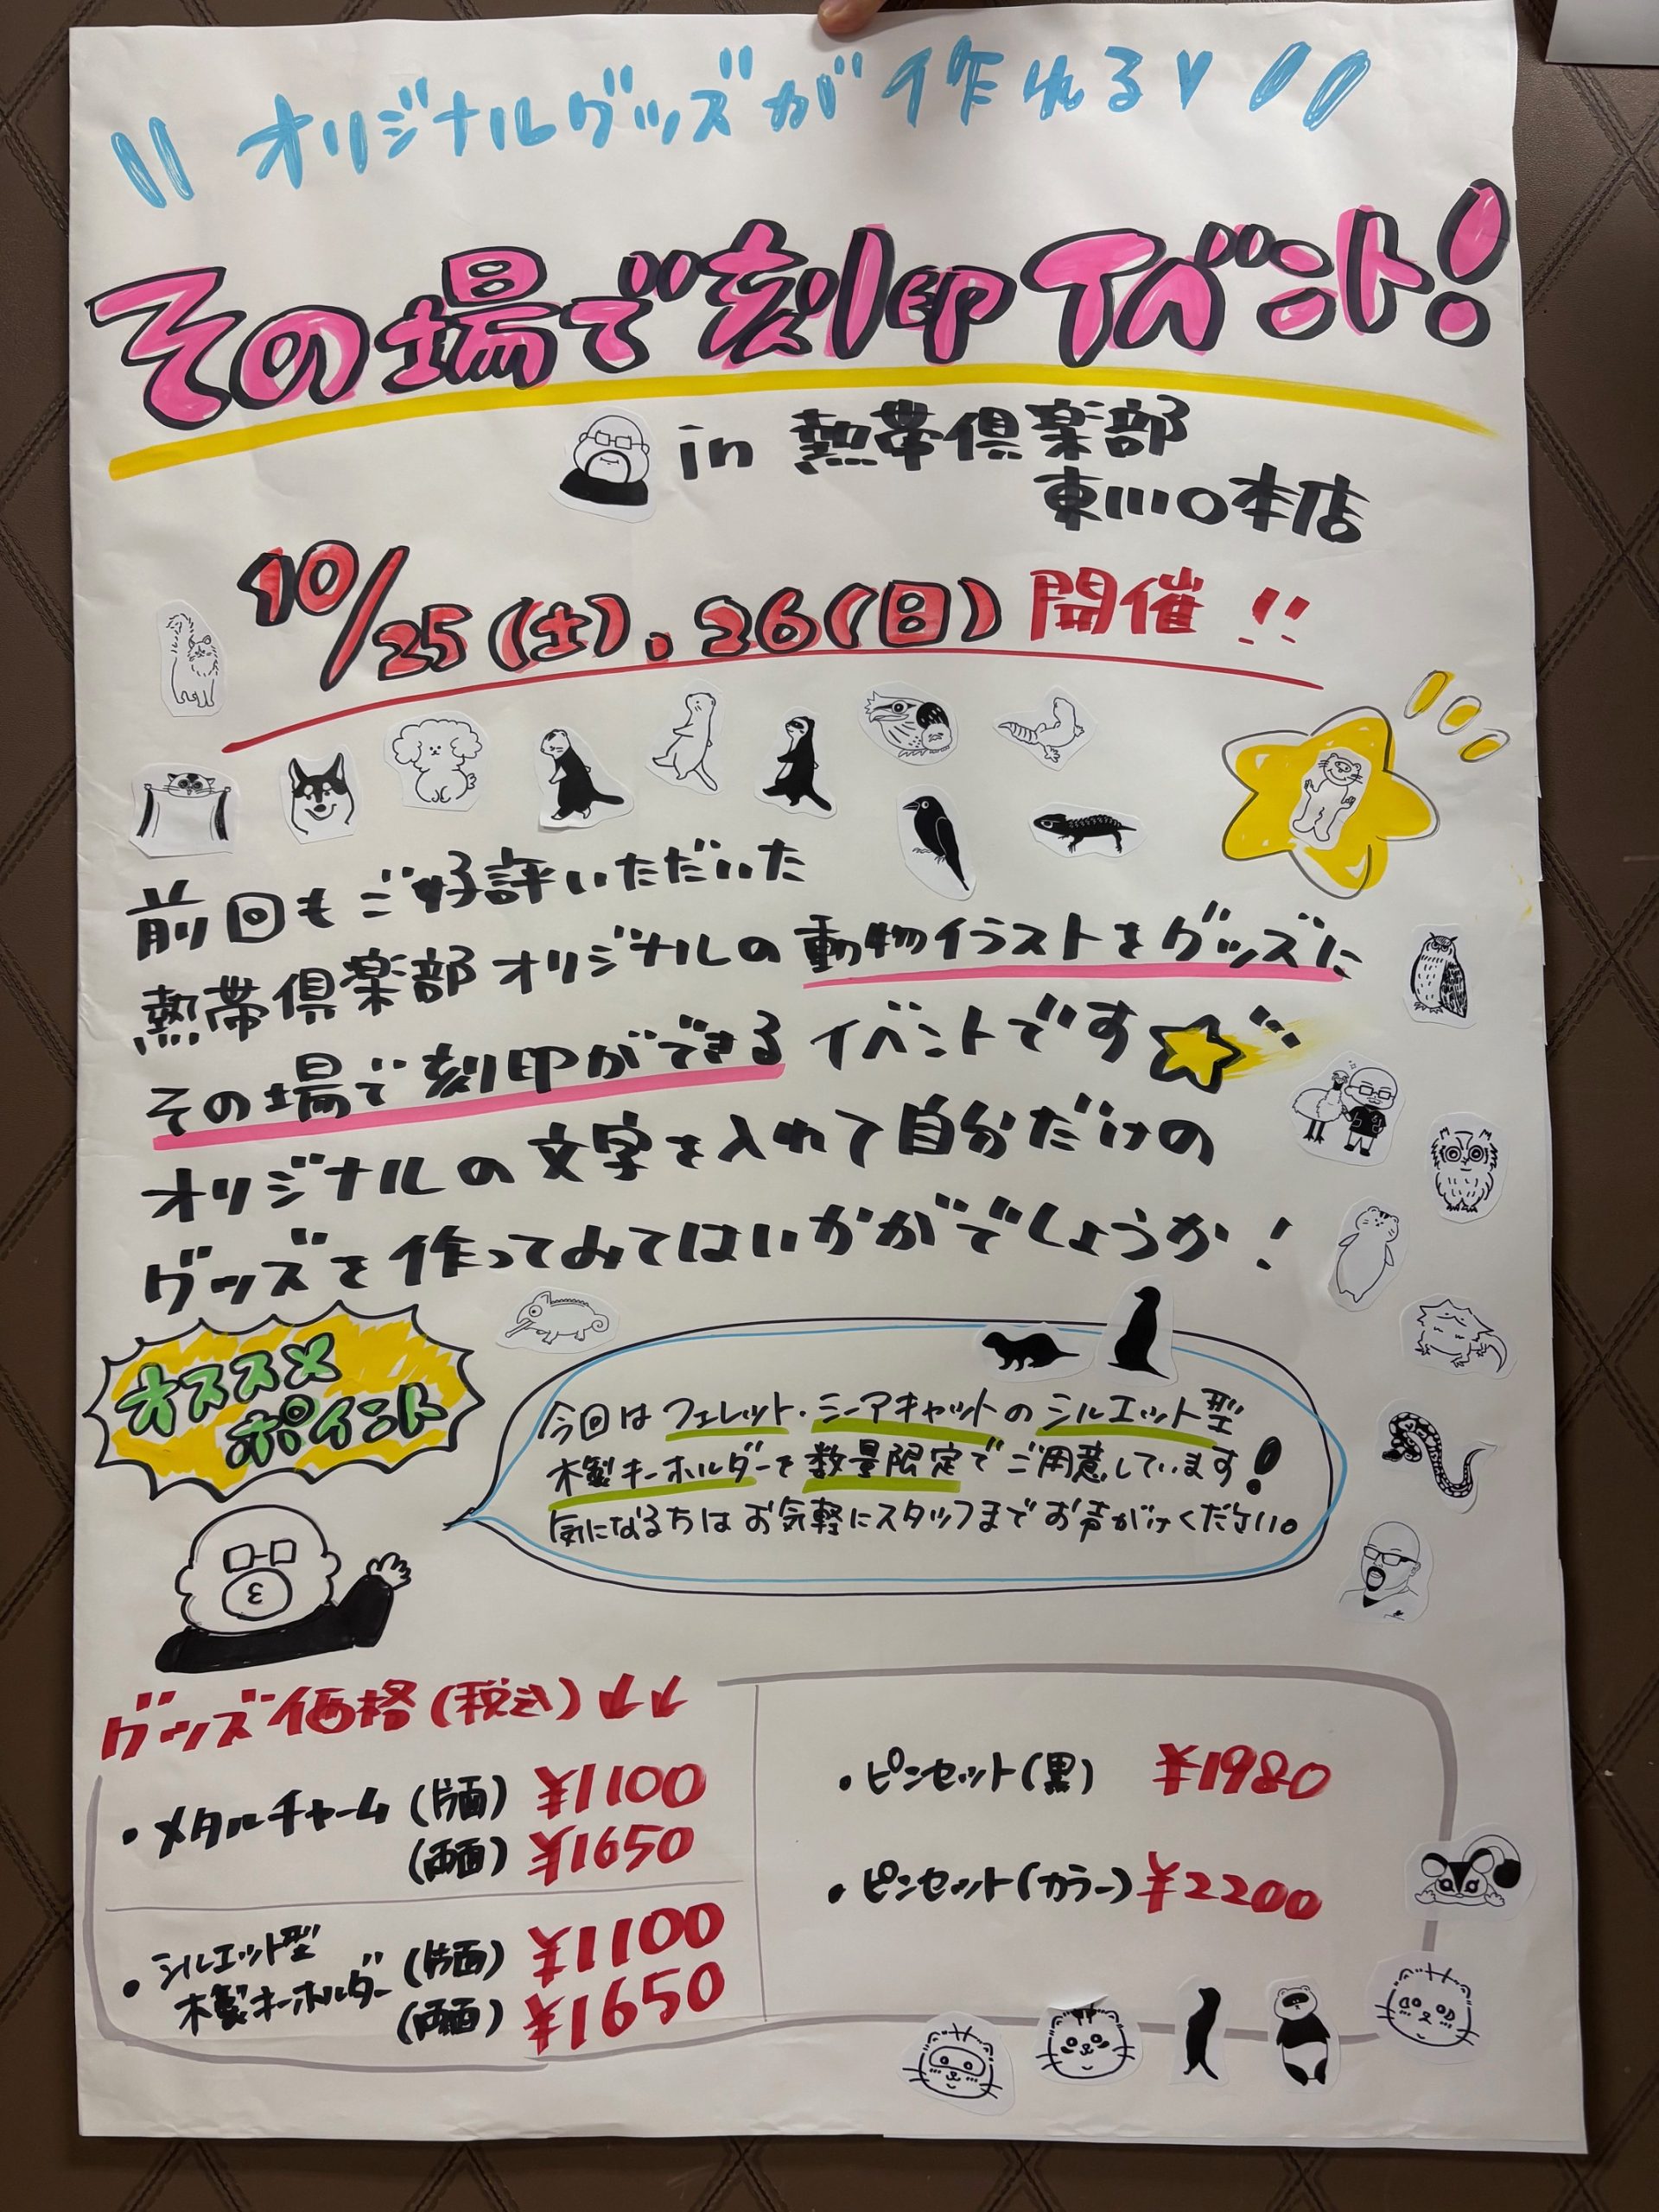 オリジナルグッズが作れる♥
その場で刻印イベント!
in 熱帯倶楽部
東川口本店
10/25(土).26(日)開催!!
前回もご好評いただいた
熱帯倶楽部オリジナルの動物イラストをグッズに
その場で刻印ができるイベントです
オリジナルの文字を入れて自分だけの
グッズを作ってみてはいかがでしょうか!
オススメ
ポイント
今回はフェレット・ミーアキャットのシルエット型
木製キーホルダーを数量限定でご用意しています!
気になる方はお気軽にスタッフまでお声がけください。
グッズ価格(税込)↓↓
・メタルチャーム(片面) ¥1100
(両面) ¥1650
・シルエット型
木製キーホルダー(片面) ¥1100
(両面) ¥1650
・ピンセット(黒) ¥1980
・ピンセット(カラー) ¥2200